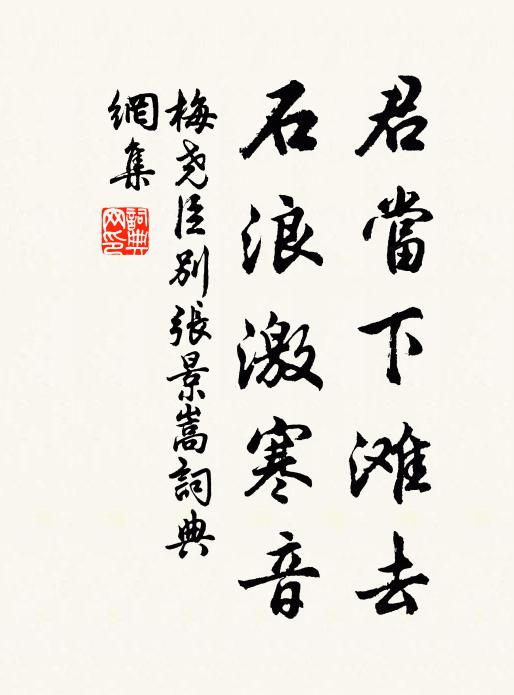 君當下滩去
石浪激寒音
梅尧臣别張景嵩詞典
網集
詞典网印